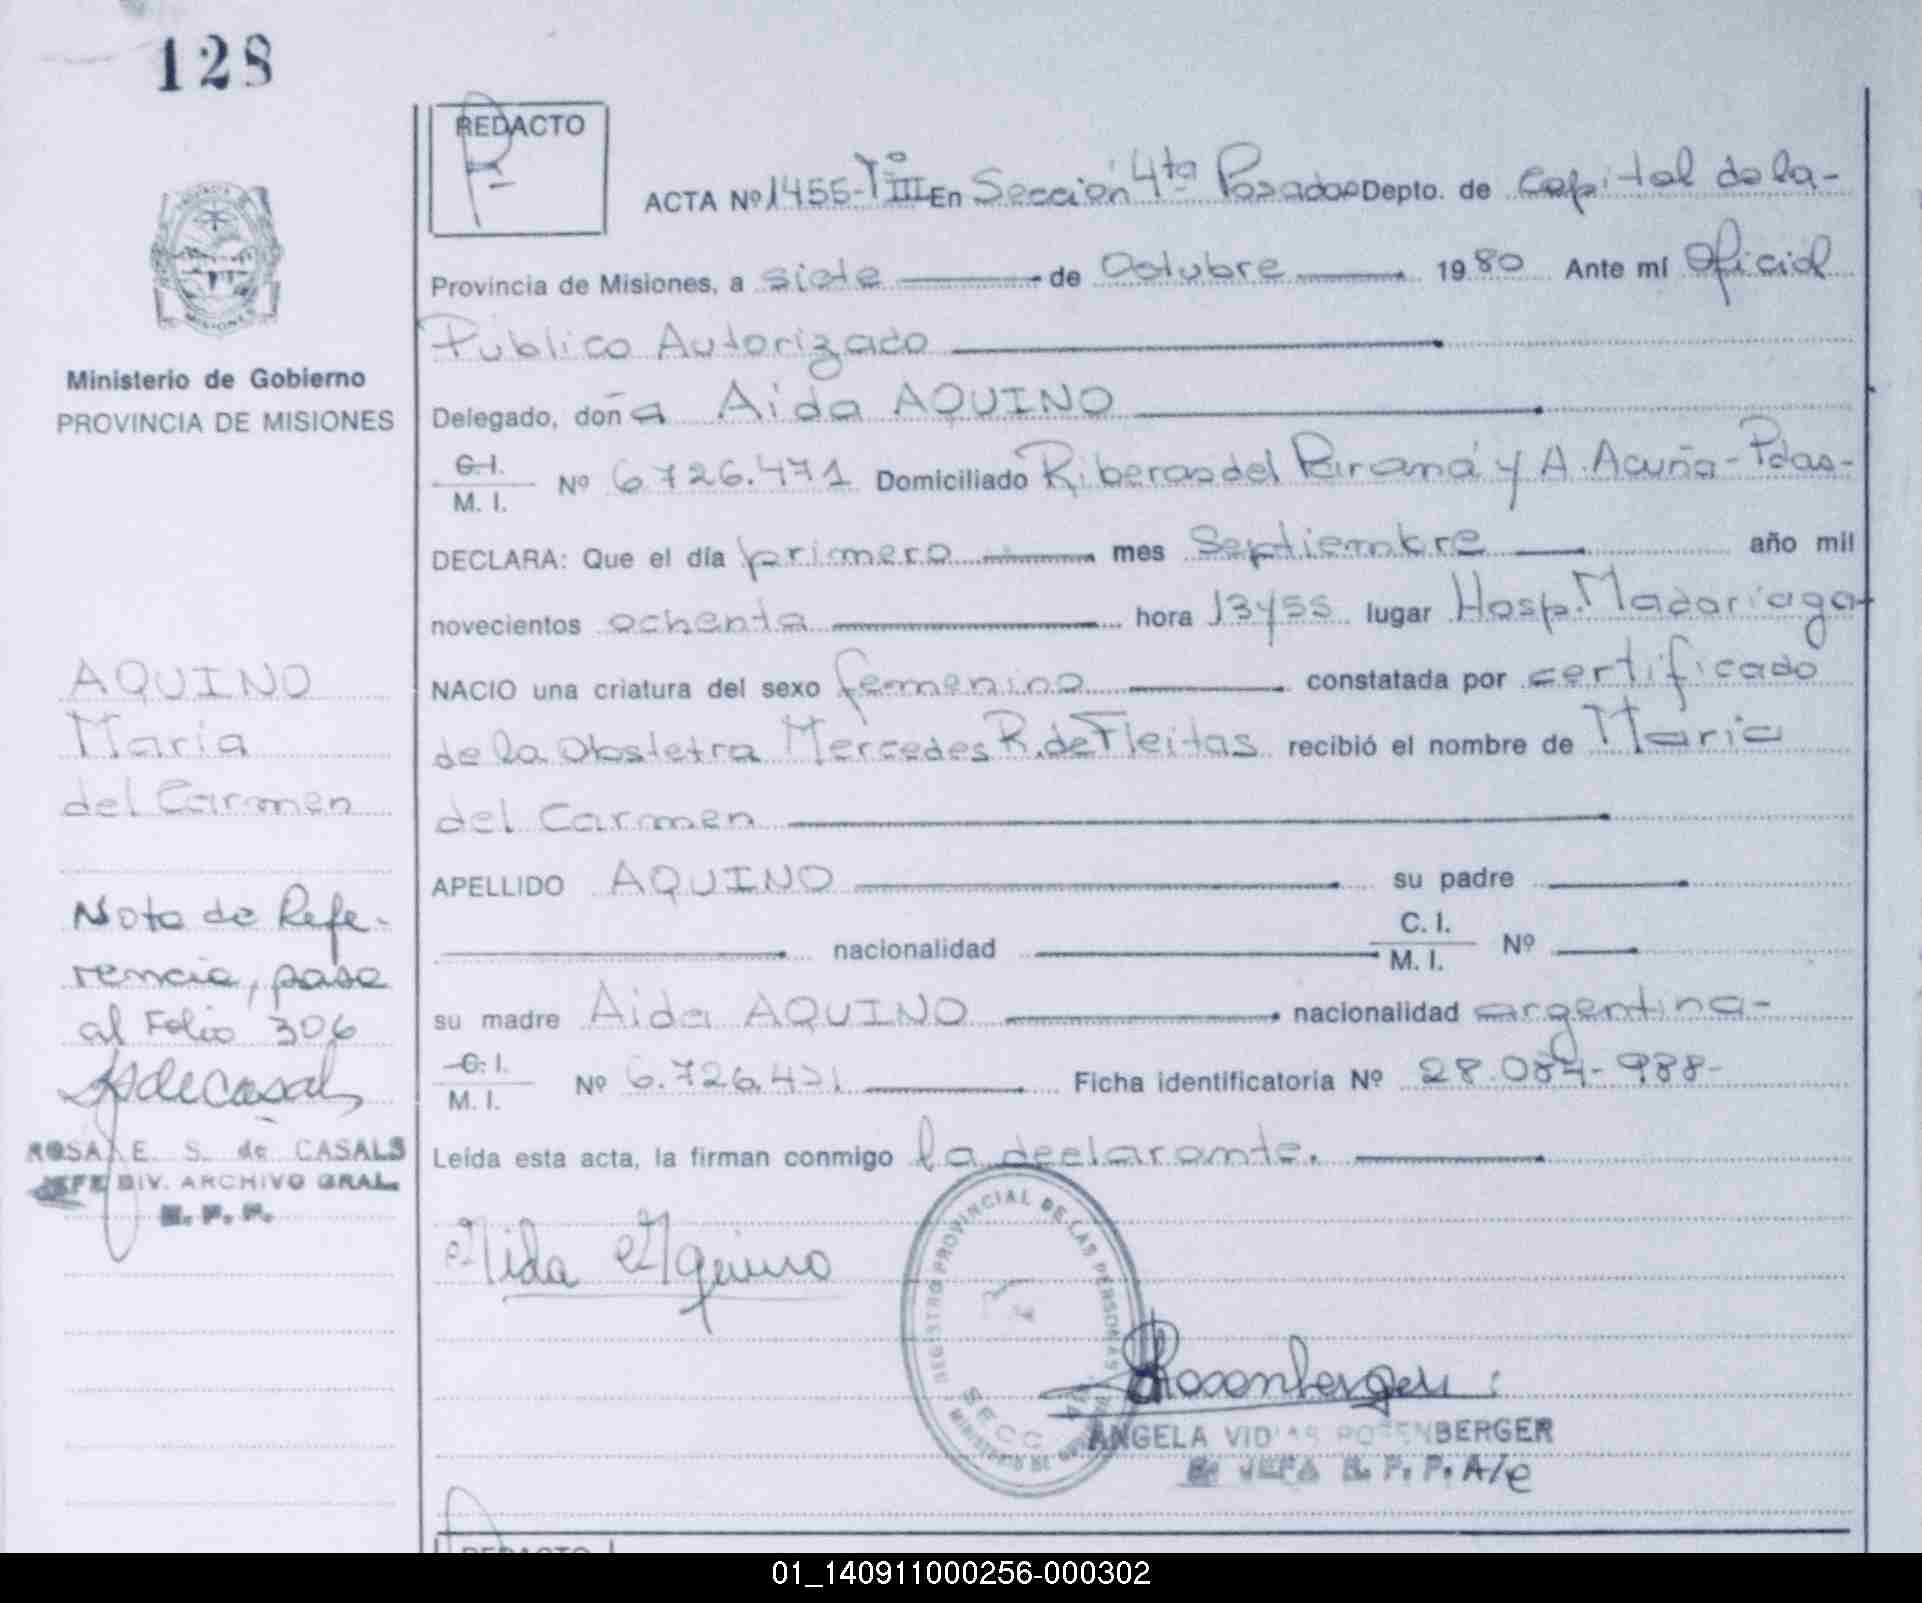 128
REDACTO
ACTA Nº 1455-Tº III En Sección 4ta Posadas Depto. de Capital de la-
Provincia de Misiones, a siete de Octubre 1980 Ante mí Oficial
Público Autorizado
Delegado, doña Aida AQUINO
C.I. M.I. Nº 6.726.471 Domiciliado Riberas del Paraná y A. Acuña-Pdas-
DECLARA: Que el día primero mes Septiembre año mil
novecientos ochenta hora 13y55 lugar Hosp. Madariaga-
NACIO una criatura del sexo femenino constatada por certificado
de la Obstetra Mercedes R. de Fleitas recibió el nombre de María
del Carmen
APELLIDO AQUINO su padre
nacionalidad C.I. M.I. Nº
su madre Aida AQUINO nacionalidad argentina-
C.I. M.I. Nº 6.726.471 Ficha identificatoria Nº 28.084-988-
Leída esta acta, la firman conmigo la declarante.
Aida Aquino
REGISTRO PROVINCIAL DE LAS PERSONAS
MINISTERIO DE
SECC
Rosenberger
ANGELA VIDAS ROSENBERGER
JEFA R. P. P. A/c
MISIONES
Ministerio de Gobierno
PROVINCIA DE MISIONES
AQUINO
María
del Carmen
Nota de Refe-
rencia, pasa
al Folio 306
SdeCasals
ROSA E. S. de CASALS
JEFE DIV. ARCHIVO GRAL.
R. P. P.
REDACTO
01_140911000256-000302